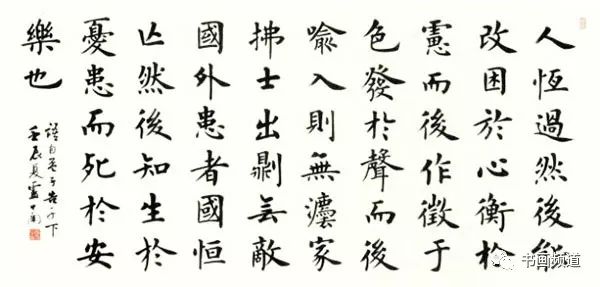 人恆過然後能
改困於心衡於
憲而後作徵于
色發於聲而後
喻入則無灋家
拂士出則无敵
國外患者國恒
亡然後知生於
憂患而死於安
樂也
語自孟子告子下
壬辰夏
书画频道